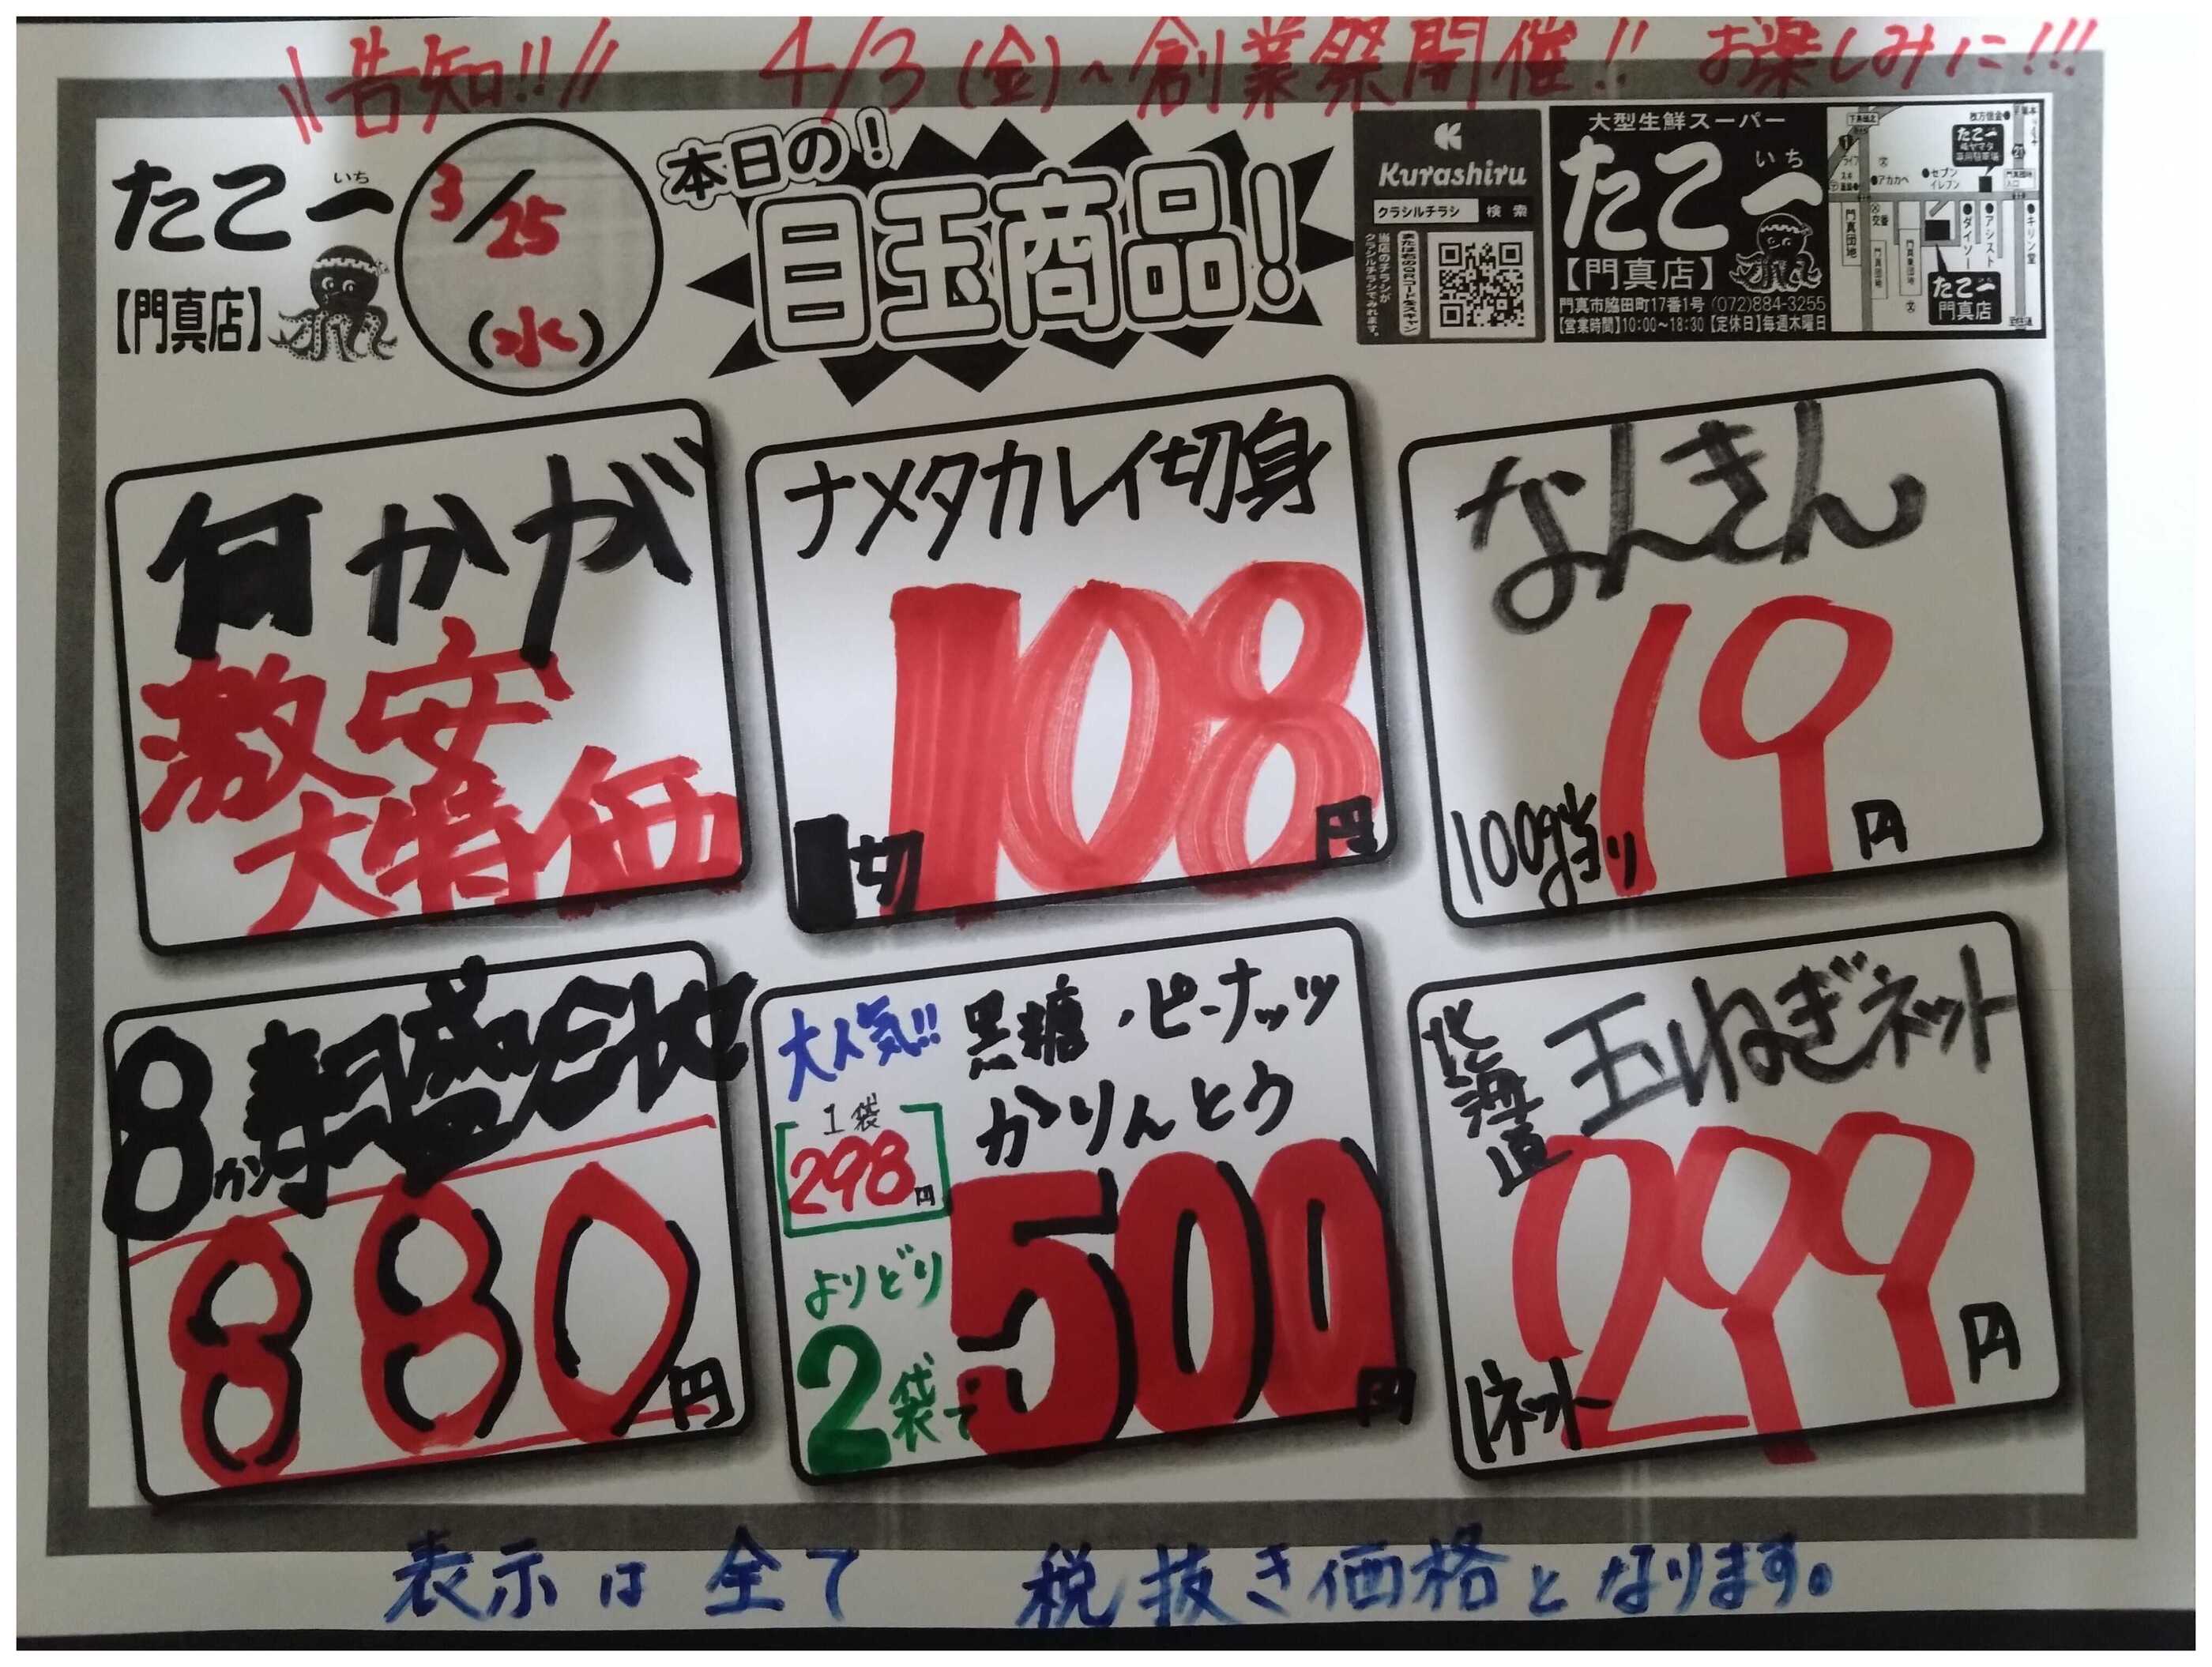 \\告知!!// 4/3(金)~創業祭開催!! お楽しみに!!!
たこ一
いち
【門真店】
3/25
(水)
本日の!
目玉商品!
Kurashiru
クラシルチラシ 検索
当店のチラシが
クラシルチラシでみれます。
または右のQRコードをスキャン
大型生鮮スーパー
たこ一
いち
【門真店】
門真市脇田町17番1号 (072)884-3255
【営業時間】10:00〜18:30【定休日】毎週木曜日
枚方信金
たこ一
ライフ
アカカベ
セブン
イレブン
門真団地
交番
ダイソー
アシスト
キリン堂
たこ一
門真店
何かが
激安
大特価
ナメタカレイ切身
108
1切
円
なんきん
19
100g当り
円
8カン寿司盛合せ
880
円
大人気!!
黒糖・ピーナッツ
かりんとう
1袋
298円
よりどり
2袋で
500
円
北海道
玉ねぎネット
299
1ネット
円
表示は全て 税抜き価格となります。